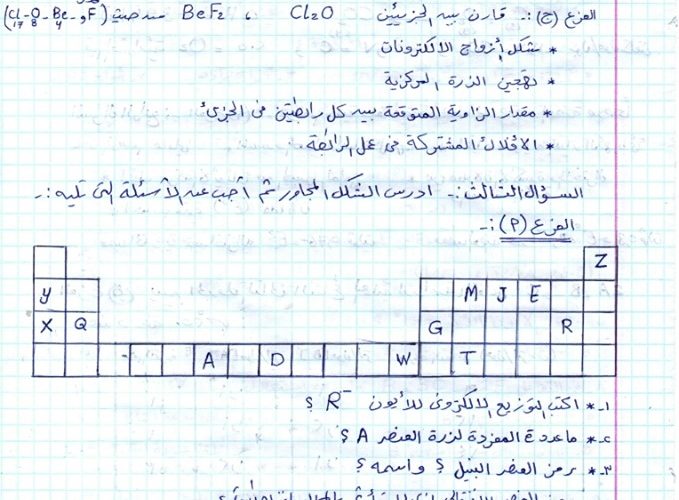 الفرع (ج) :- قارن بين الجزيئين Cl2O ، BeF2 من حيث (17Cl - 8O - 4Be - و F)
* شكل أزواج الالكترونات
* تهجين الذرة المركزية
* مقدار الزاوية المتوقعة بين كل رابطتين في الجزيء
* الأفلاك المشتركة في عمل الرابطة.
السؤال الثالث :- ادرس الشكل المجاور ثم أجب عن الأسئلة التي تليه :-
الفرع (أ) :-
Z
y M J E
X Q G R
A D W T
١-* اكتب التوزيع الالكتروني للأيون R⁻ ؟
٢-* ما عدد المفردة لذرة العنصر A ؟
٣-* رمز العنصر النبيل ؟ واسمه ؟